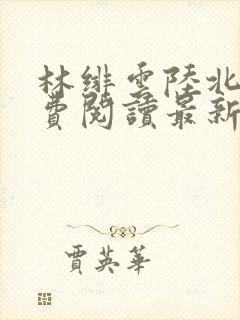 林緋雲陸北
費閱讀最新
賈英華